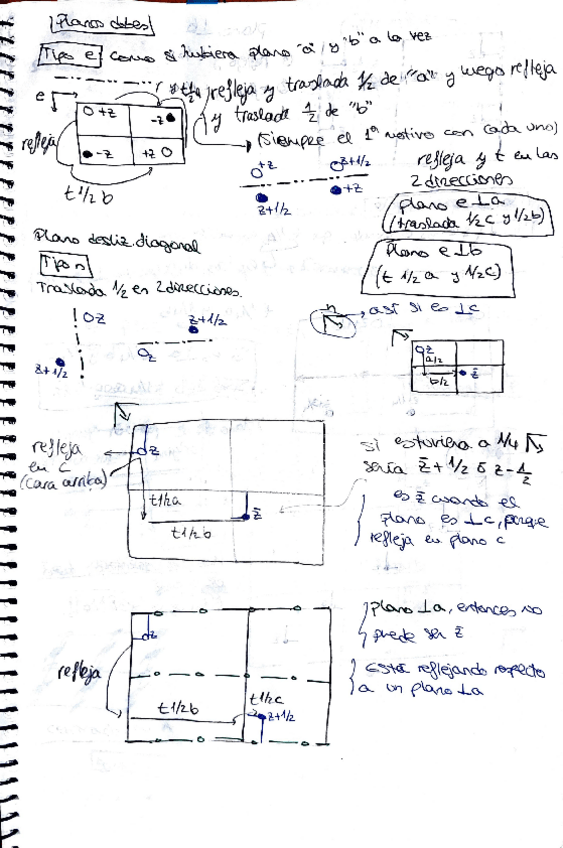 Planos dobles
Tipo e como si hubiera plano "a" y "b" a la vez
refleja y traslada 1/2 de "a" y luego refleja
y traslada 1/2 de "b"
(siempre el 1º motivo con cada uno)
e
+z
-z
refleja
-z
+z
t 1/2 b
+z
z+1/2
z+1/2
+z
refleja y t en las
2 direcciones
plano e ⊥a
(traslada 1/2c y 1/2b)
Plano e ⊥b
(t 1/2 a y 1/2c)
Plano desliz. diagonal
Tipo n
Traslada 1/2 en 2 direcciones.
z
z+1/2
z+1/2
z
n
así si es ⊥c
z
a/2
b/2
z̄
refleja
en c
(cara arriba)
z
t1/2a
t1/2b
z̄
si estuviera a 1/4
sería z̄+1/2 ó z-1/2
es z̄ cuando el
plano es ⊥c, porque
refleja en plano c
z
refleja
t1/2b
t1/2c
z+1/2
plano ⊥a, entonces no
puede ser z̄
Está reflejando respecto
a un plano ⊥a